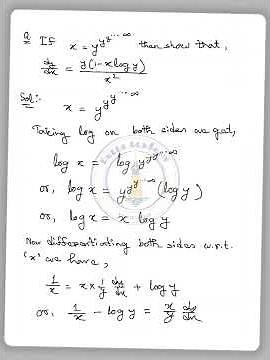 Q If x = y^y^y^...∞ then show that,
dy/dx = y(1-x log y)/x²
Sol:- x = y^y^y^...∞
Taking log on both sides we get,
log x = log y^y^y^...∞
or, log x = y^y^y^...∞ (log y)
or, log x = x log y
Now differentiating both sides w.r.t.
'x' we have,
1/x = x × 1/y dy/dx + log y
or, 1/x - log y = x/y dy/dx